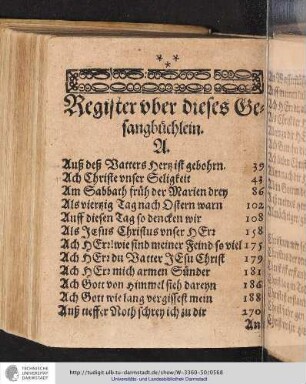 Register vber dieses Ge-
sangbüchlein.
A.
Auß deß Vatters Hertz ist gebohrn. 39
Ach Christe vnser Seligkeit
Am Sabbath früh der Marien drey 86
Als viertzig Tag nach Ostern warn 102
Auff diesen Tag so dencken wir 108
Als JEsus Christus vnser HErr 158
Ach HErr wie sind meiner Feind so viel 175
Ach HErr du Vatter JEsu Christ 179
Ach HErr mich armen Sünder 181
Ach Gott von Himmel sieh dareyn 186
Ach Gott wie lang vergissest mein 188
Auß tieffer Noth schrey ich zu dir 270
An
TECHNISCHE
UNIVERSITÄT
DARMSTADT
http://tudigit.ulb.tu-darmstadt.de/show/W-3360-50/0568
Universitäts- und Landesbibliothek Darmstadt